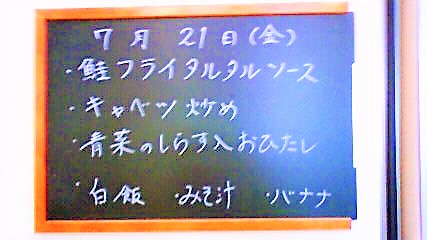 7月 21日(金)
・鮭フライタルタルソース
・キャベツ炒め
・青菜のしらす入おひたし
・白飯 ・みそ汁 ・バナナ